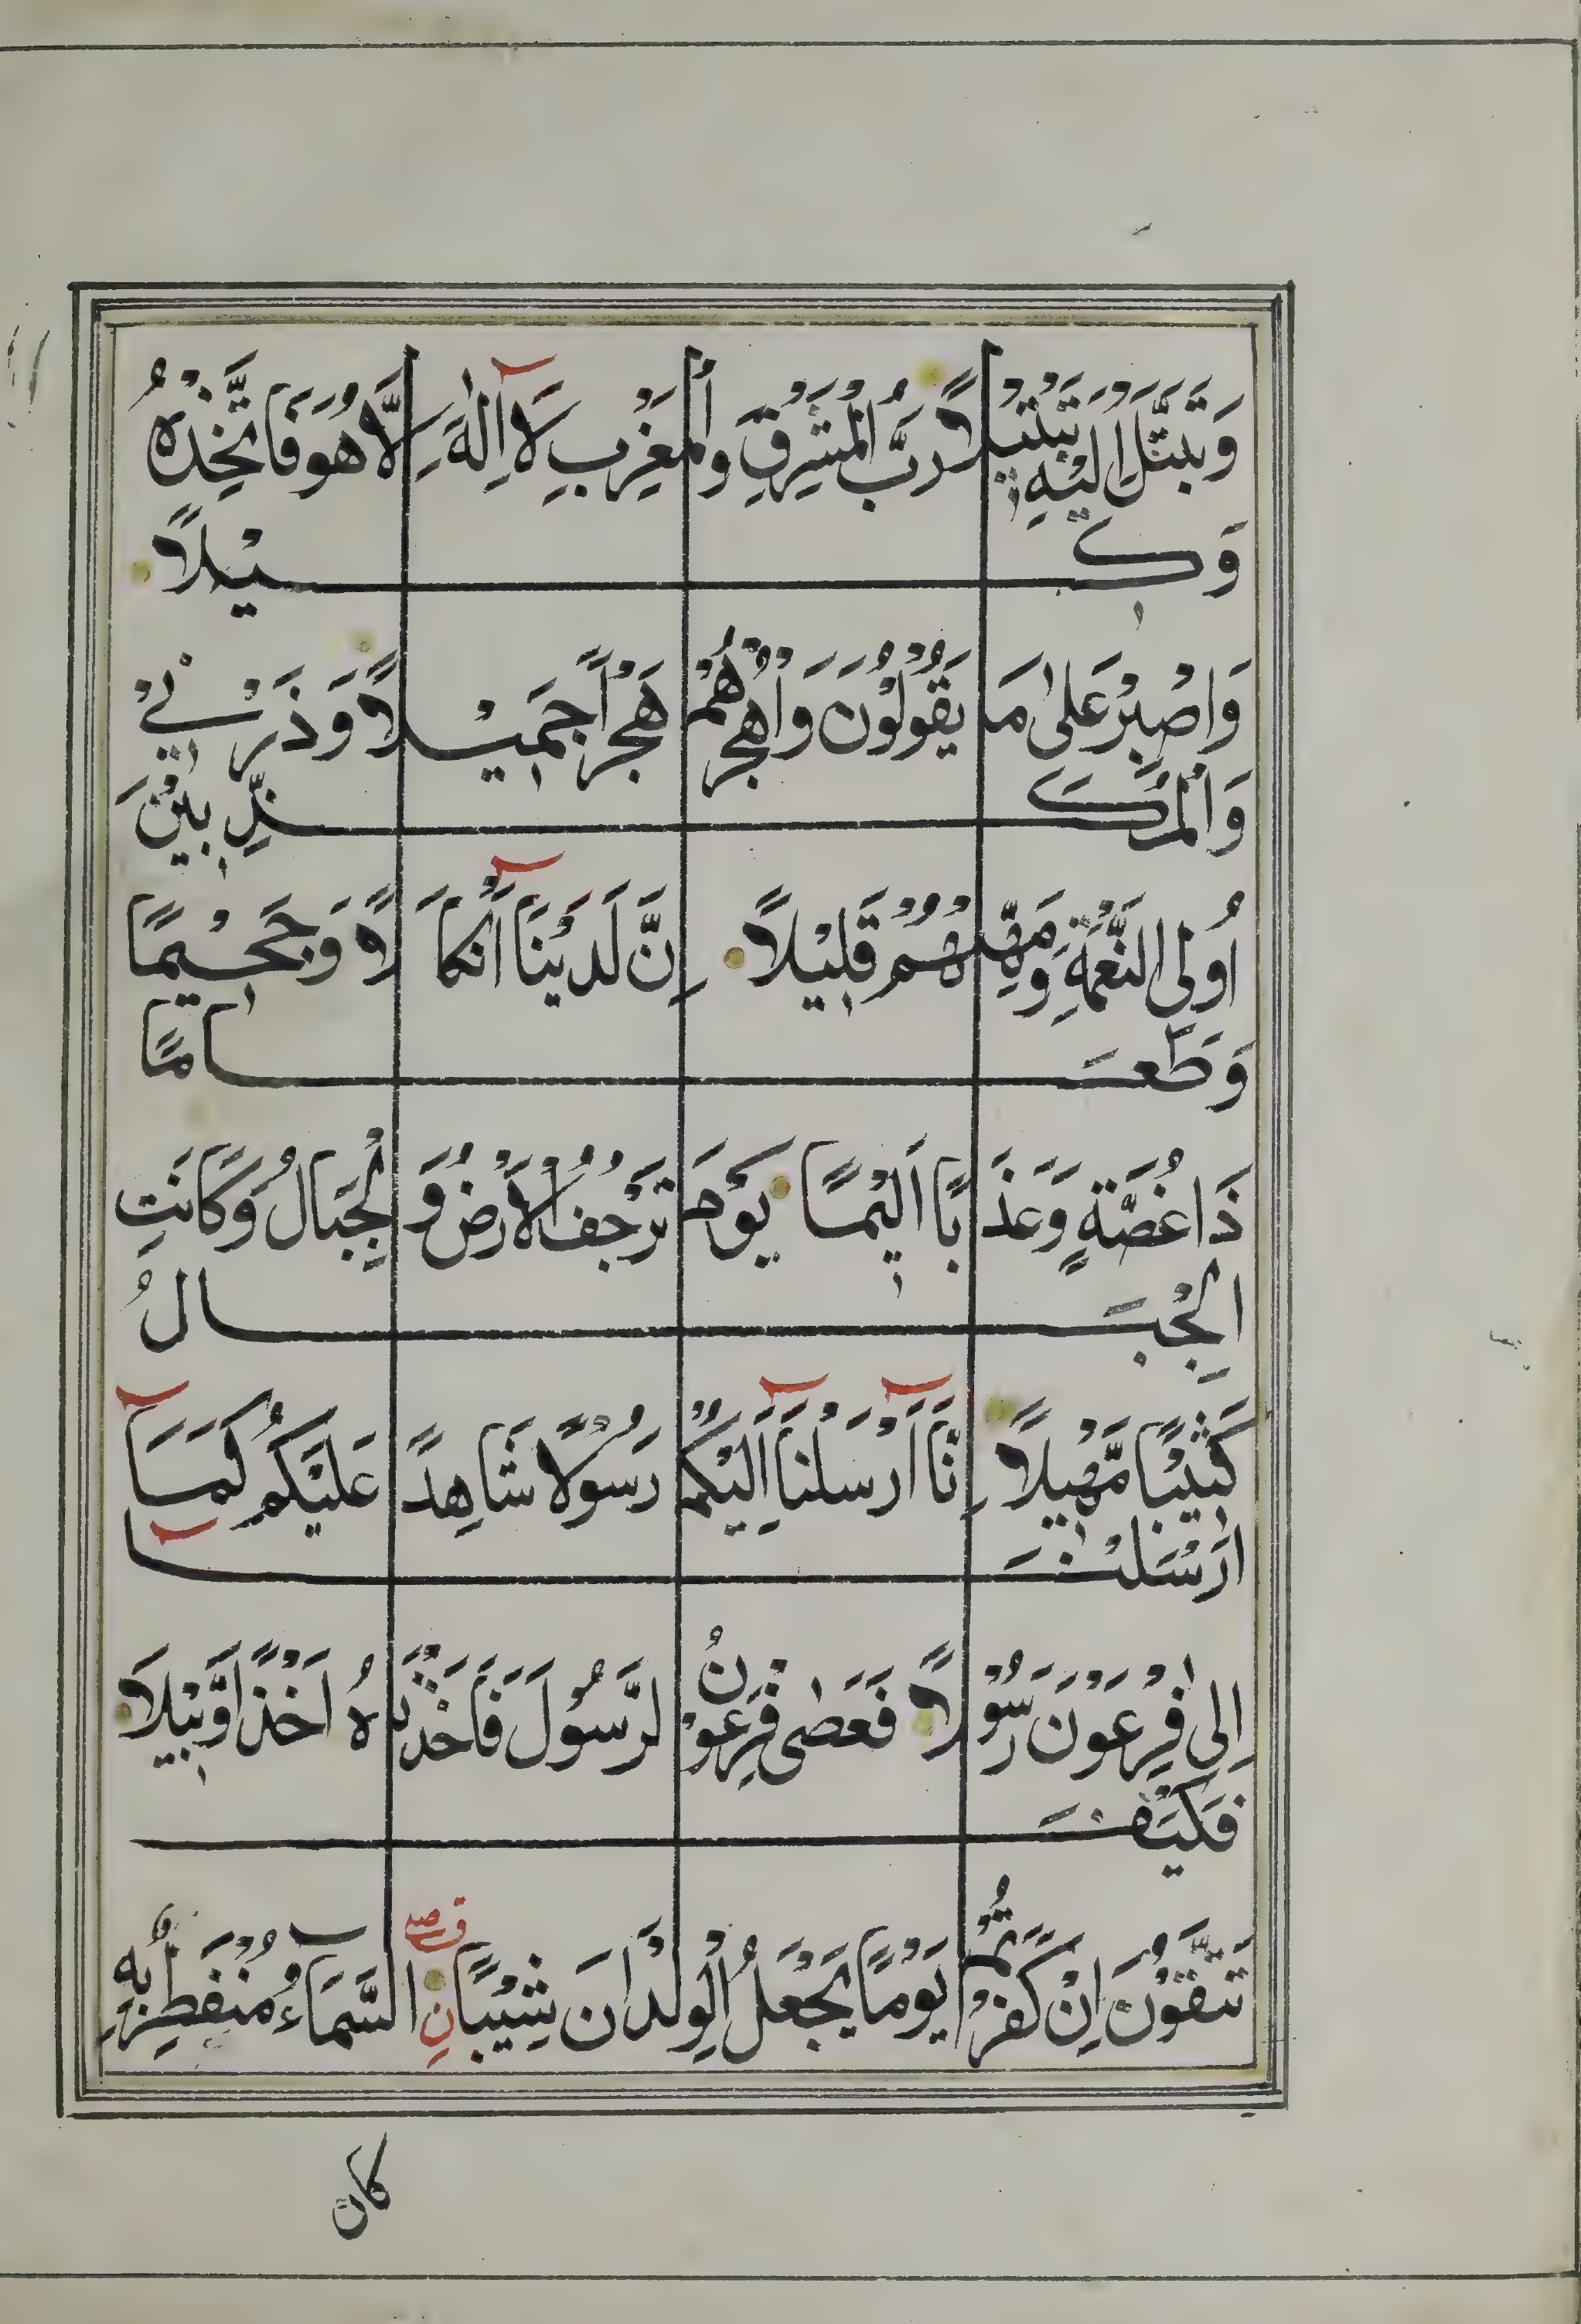 وَتَبَتَّلْ اِلَيْهِ تَبْتِيْلًا رَبُّ الْمَشْرِقِ وَالْمَغْرِبِ لَآ اِلٰهَ اِلَّا هُوَ فَاتَّخِذْهُ
وَكِيْلًا
وَاصْبِرْ عَلٰى مَا يَقُوْلُوْنَ وَاهْجُرْهُمْ هَجْرًا جَمِيْلًا وَذَرْنِيْ
وَالْمُكَذِّبِيْنَ
اُولِى النَّعْمَةِ وَمَهِّلْهُمْ قَلِيْلًا اِنَّ لَدَيْنَآ اَنْكَالًا وَجَحِيْمًا
وَطَعَامًا
ذَا غُصَّةٍ وَّعَذَابًا اَلِيْمًا يَوْمَ تَرْجُفُ الْاَرْضُ وَالْجِبَالُ وَكَانَتِ
الْجِبَالُ
كَثِيْبًا مَّهِيْلًا اِنَّآ اَرْسَلْنَآ اِلَيْكُمْ رَسُوْلًا شَاهِدًا عَلَيْكُمْ كَمَآ
اَرْسَلْنَآ
اِلٰى فِرْعَوْنَ رَسُوْلًا فَعَصٰى فِرْعَوْنُ الرَّسُوْلَ فَاَخَذْنٰهُ اَخْذًا وَّبِيْلًا
فَكَيْفَ
تَتَّقُوْنَ اِنْ كَفَرْتُمْ يَوْمًا يَجْعَلُ الْوِلْدَانَ شِيْبًا نِ السَّمَآءُ مُنْفَطِرٌ بِهٖ
كان